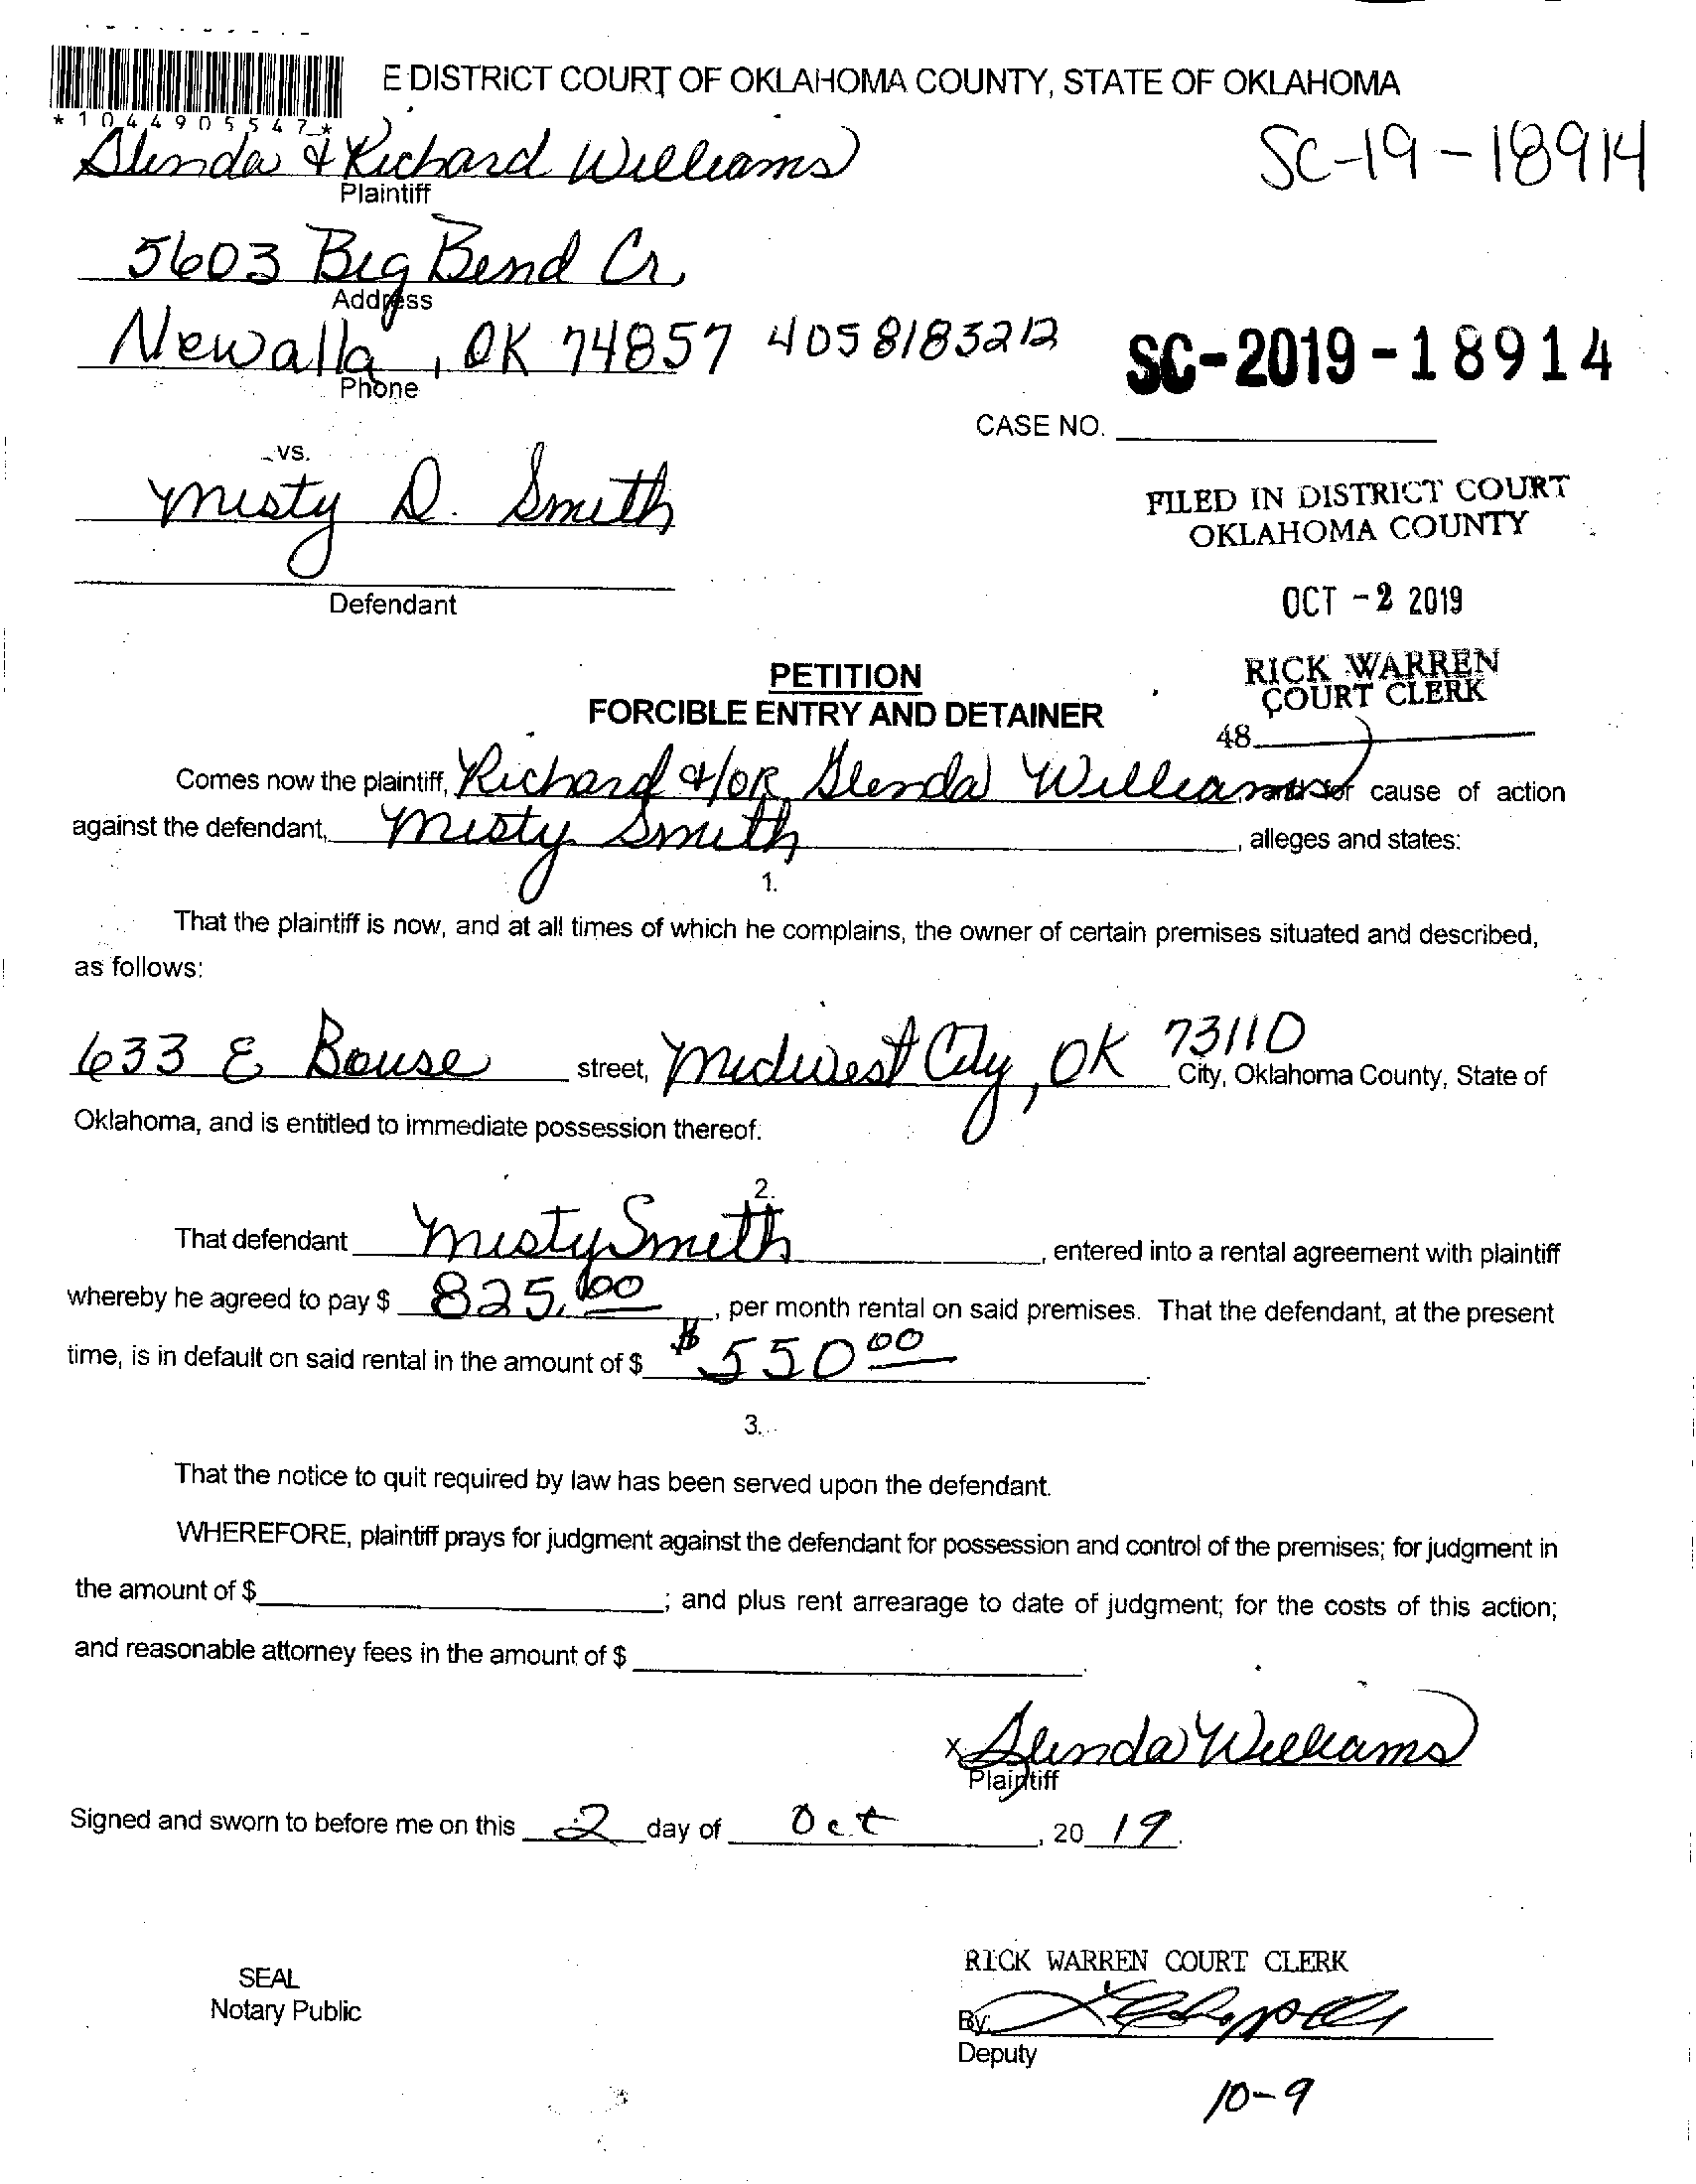 E DISTRICT COURT OF OKLAHOMA COUNTY, STATE OF OKLAHOMA
*1044905547*
Glenda & Richard Williams
SC-19-18914
Plaintiff
5603 Big Bend Cr,
Address
Newalla, OK 74857 4058183212
SC-2019-18914
Phone
CASE NO.
vs.
Misty D. Smith
FILED IN DISTRICT COURT
OKLAHOMA COUNTY
Defendant
OCT -2 2019
PETITION
RICK WARREN
COURT CLERK
FORCIBLE ENTRY AND DETAINER
48
Comes now the plaintiff, Richard &/OR Glenda Williams, and for cause of action
against the defendant, Misty Smith, alleges and states:
1.
That the plaintiff is now, and at all times of which he complains, the owner of certain premises situated and described,
as follows:
633 E Bouse street, Midwest City, OK 73110 City, Oklahoma County, State of
Oklahoma, and is entitled to immediate possession thereof.
2.
That defendant Misty Smith, entered into a rental agreement with plaintiff
whereby he agreed to pay $ 825.00, per month rental on said premises. That the defendant, at the present
time, is in default on said rental in the amount of $ $550 00
3.
That the notice to quit required by law has been served upon the defendant.
WHEREFORE, plaintiff prays for judgment against the defendant for possession and control of the premises; for judgment in
the amount of $ ; and plus rent arrearage to date of judgment; for the costs of this action;
and reasonable attorney fees in the amount of $ .
x Glenda Williams
Plaintiff
Signed and sworn to before me on this 2 day of Oct, 20 19.
RICK WARREN COURT CLERK
SEAL
Notary Public
By:
Deputy
10-9